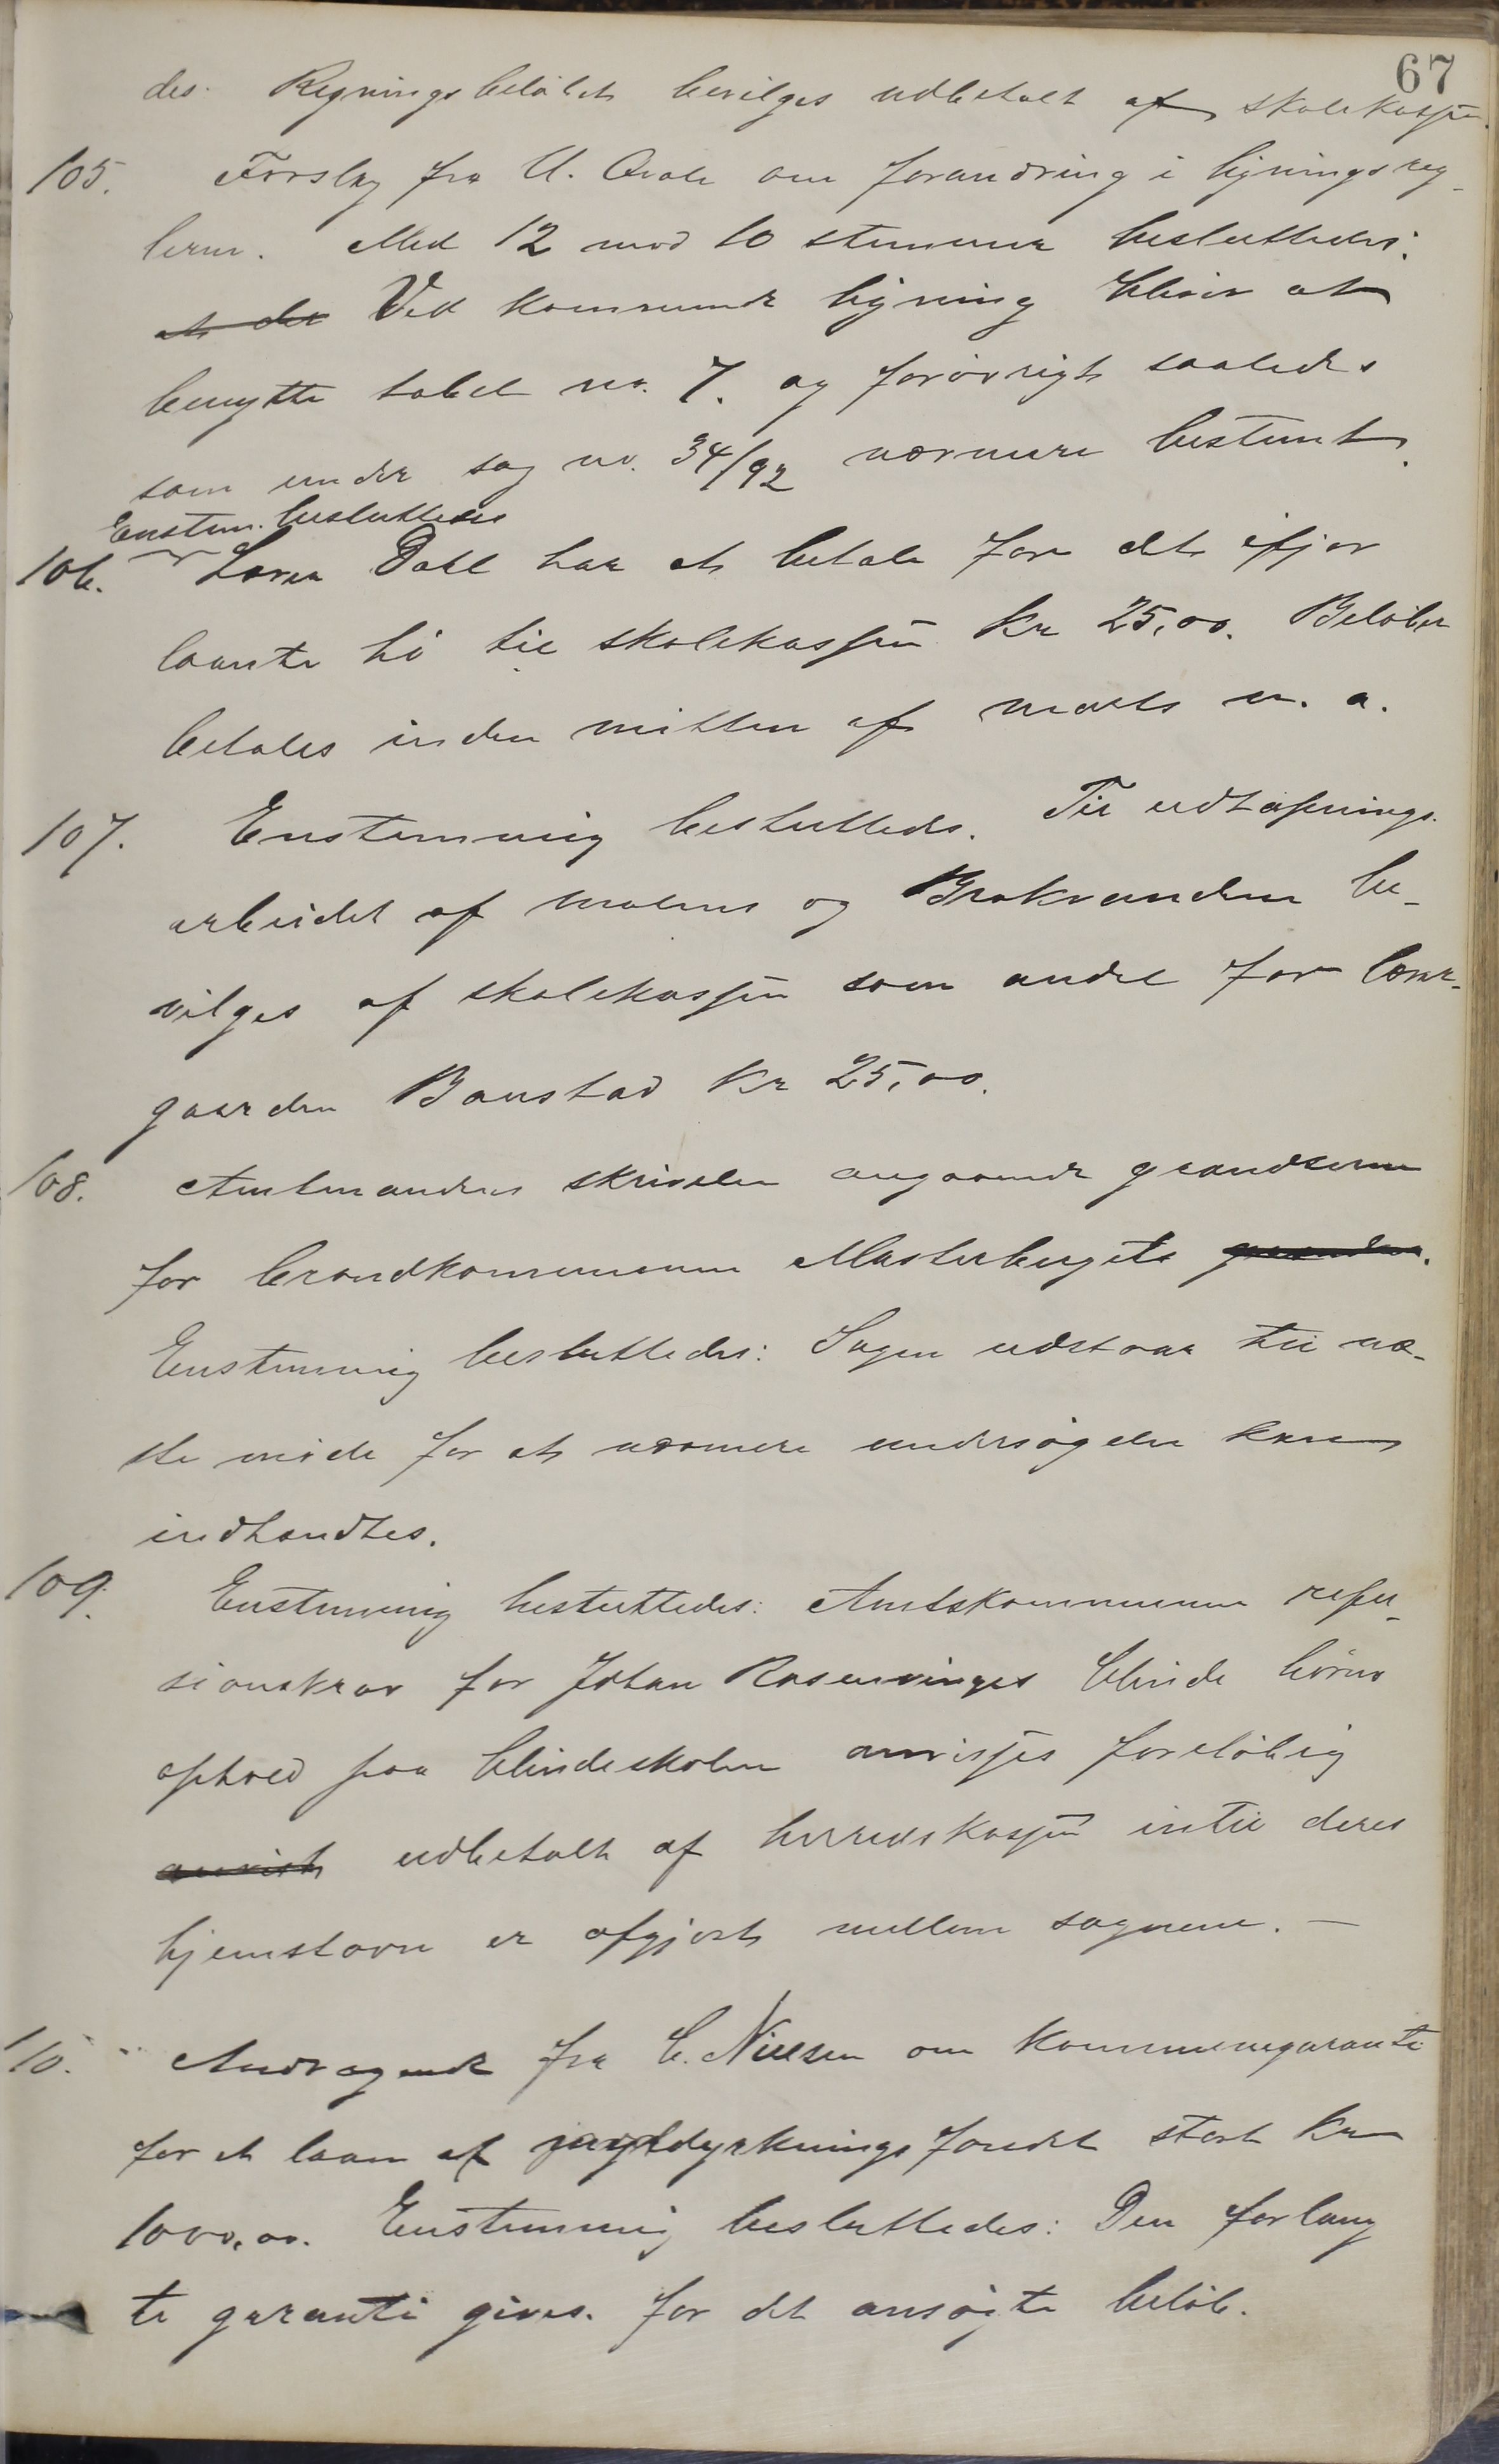 67
des. Regningsbeløbet bevilges udbetalt af skolekassen.
105. Forslag fra U. Qvale om forandring i ligningsreg-
lerne. Med 12 mod 10 stemmer besluttedes:
at der Ved kommende ligning bliver at
benytte tabel no. 7. og forøvrigt saaledes
som under sag no. 34/92 nærmere bestemt.
Enstem. besluttedes
106. Dahl har at betale for det ifjor
laante hø til skolekassen Kr 25,00. Beløbet
betales inden midten af marts n. a.
107. Enstemmig besluttedes. Til udtapnings-
arbeidet af og Brakvandene be-
vilges af skolekassen som andel for lærer-
gaarden Baustad Kr 25,00.
108. Amtmandens skrivelse angaaende grændserne
for brandkommunen Masterbugets
Enstemmig besluttedes: Sagen udstaar til næ-
ste møde for at nærmere undersøgelse kan
indhendtes.
109. Enstemmig besluttedes: Amtskommunens refu-
sionskrav for Johan Rosenvinges blinde børns
ophold paa blindeskolen anvises foreløbig
anvist udbetalt af herredskassen intil deres
hjemstavn er afgjort mellem sognene. —
110. Andragende fra C. Nielsen om kommunegaranti
for et laan af jorddyrkningsfondet stort Kr
1000,00. Enstemmig besluttedes: Den forlang
te garanti gives for det ansøgte beløb.